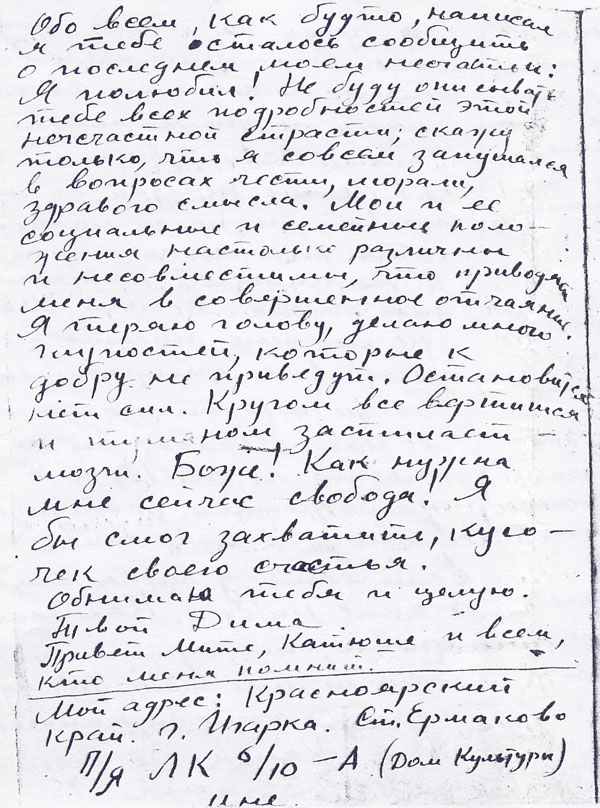 Обо всем, как будто, написал
я тебе осталось сообщить
о последнем моем несчастьи:
Я полюбил! Не буду описывать
тебе всех подробностей этой
несчастной страсти; скажу
только, что я совсем запутался
в вопросах чести, морали,
здравого смысла. Мои и ее
социальные и семейные поло-
жения настолько различны
и несовместимы, что приводят
меня в совершенное отчаяние.
Я теряю голову, делаю много
глупостей, которые к
добру не приведут. Остановиться
нет сил. Кругом все вертится
и туманом застилает
мозги. Боже! Как нужна
мне сейчас свобода. Я
бы смог захватить, кусо-
чек своего счастья.
Обнимаю тебя и целую.
Твой Дима.
Привет Мите, Катюше и всем,
кто меня помнит.
Мой адрес: Красноярский
край. г. Игарка. Ст. Ермаково
п/я ЛК 6/10 -А (Дом Культуры)
мне